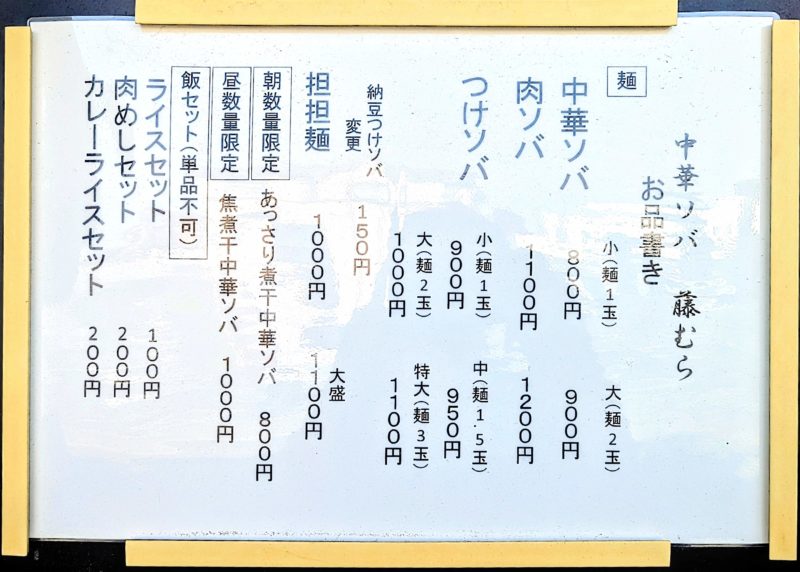 中華ソバ 藤むら
お品書き
麺
小(麺1玉) 大(麺2玉)
中華ソバ 800円 900円
肉ソバ 1100円 1200円
つけソバ
小(麺1玉) 中(麺1.5玉)
900円 950円
大(麺2玉) 特大(麺3玉)
1000円 1100円
納豆つけソバ
変更 150円
大盛
担担麺 1000円 1100円
朝数量限定 あっさり煮干中華ソバ 800円
昼数量限定 焦煮干中華ソバ 1000円
飯セット(単品不可)
ライスセット 100円
肉めしセット 200円
カレーライスセット 200円